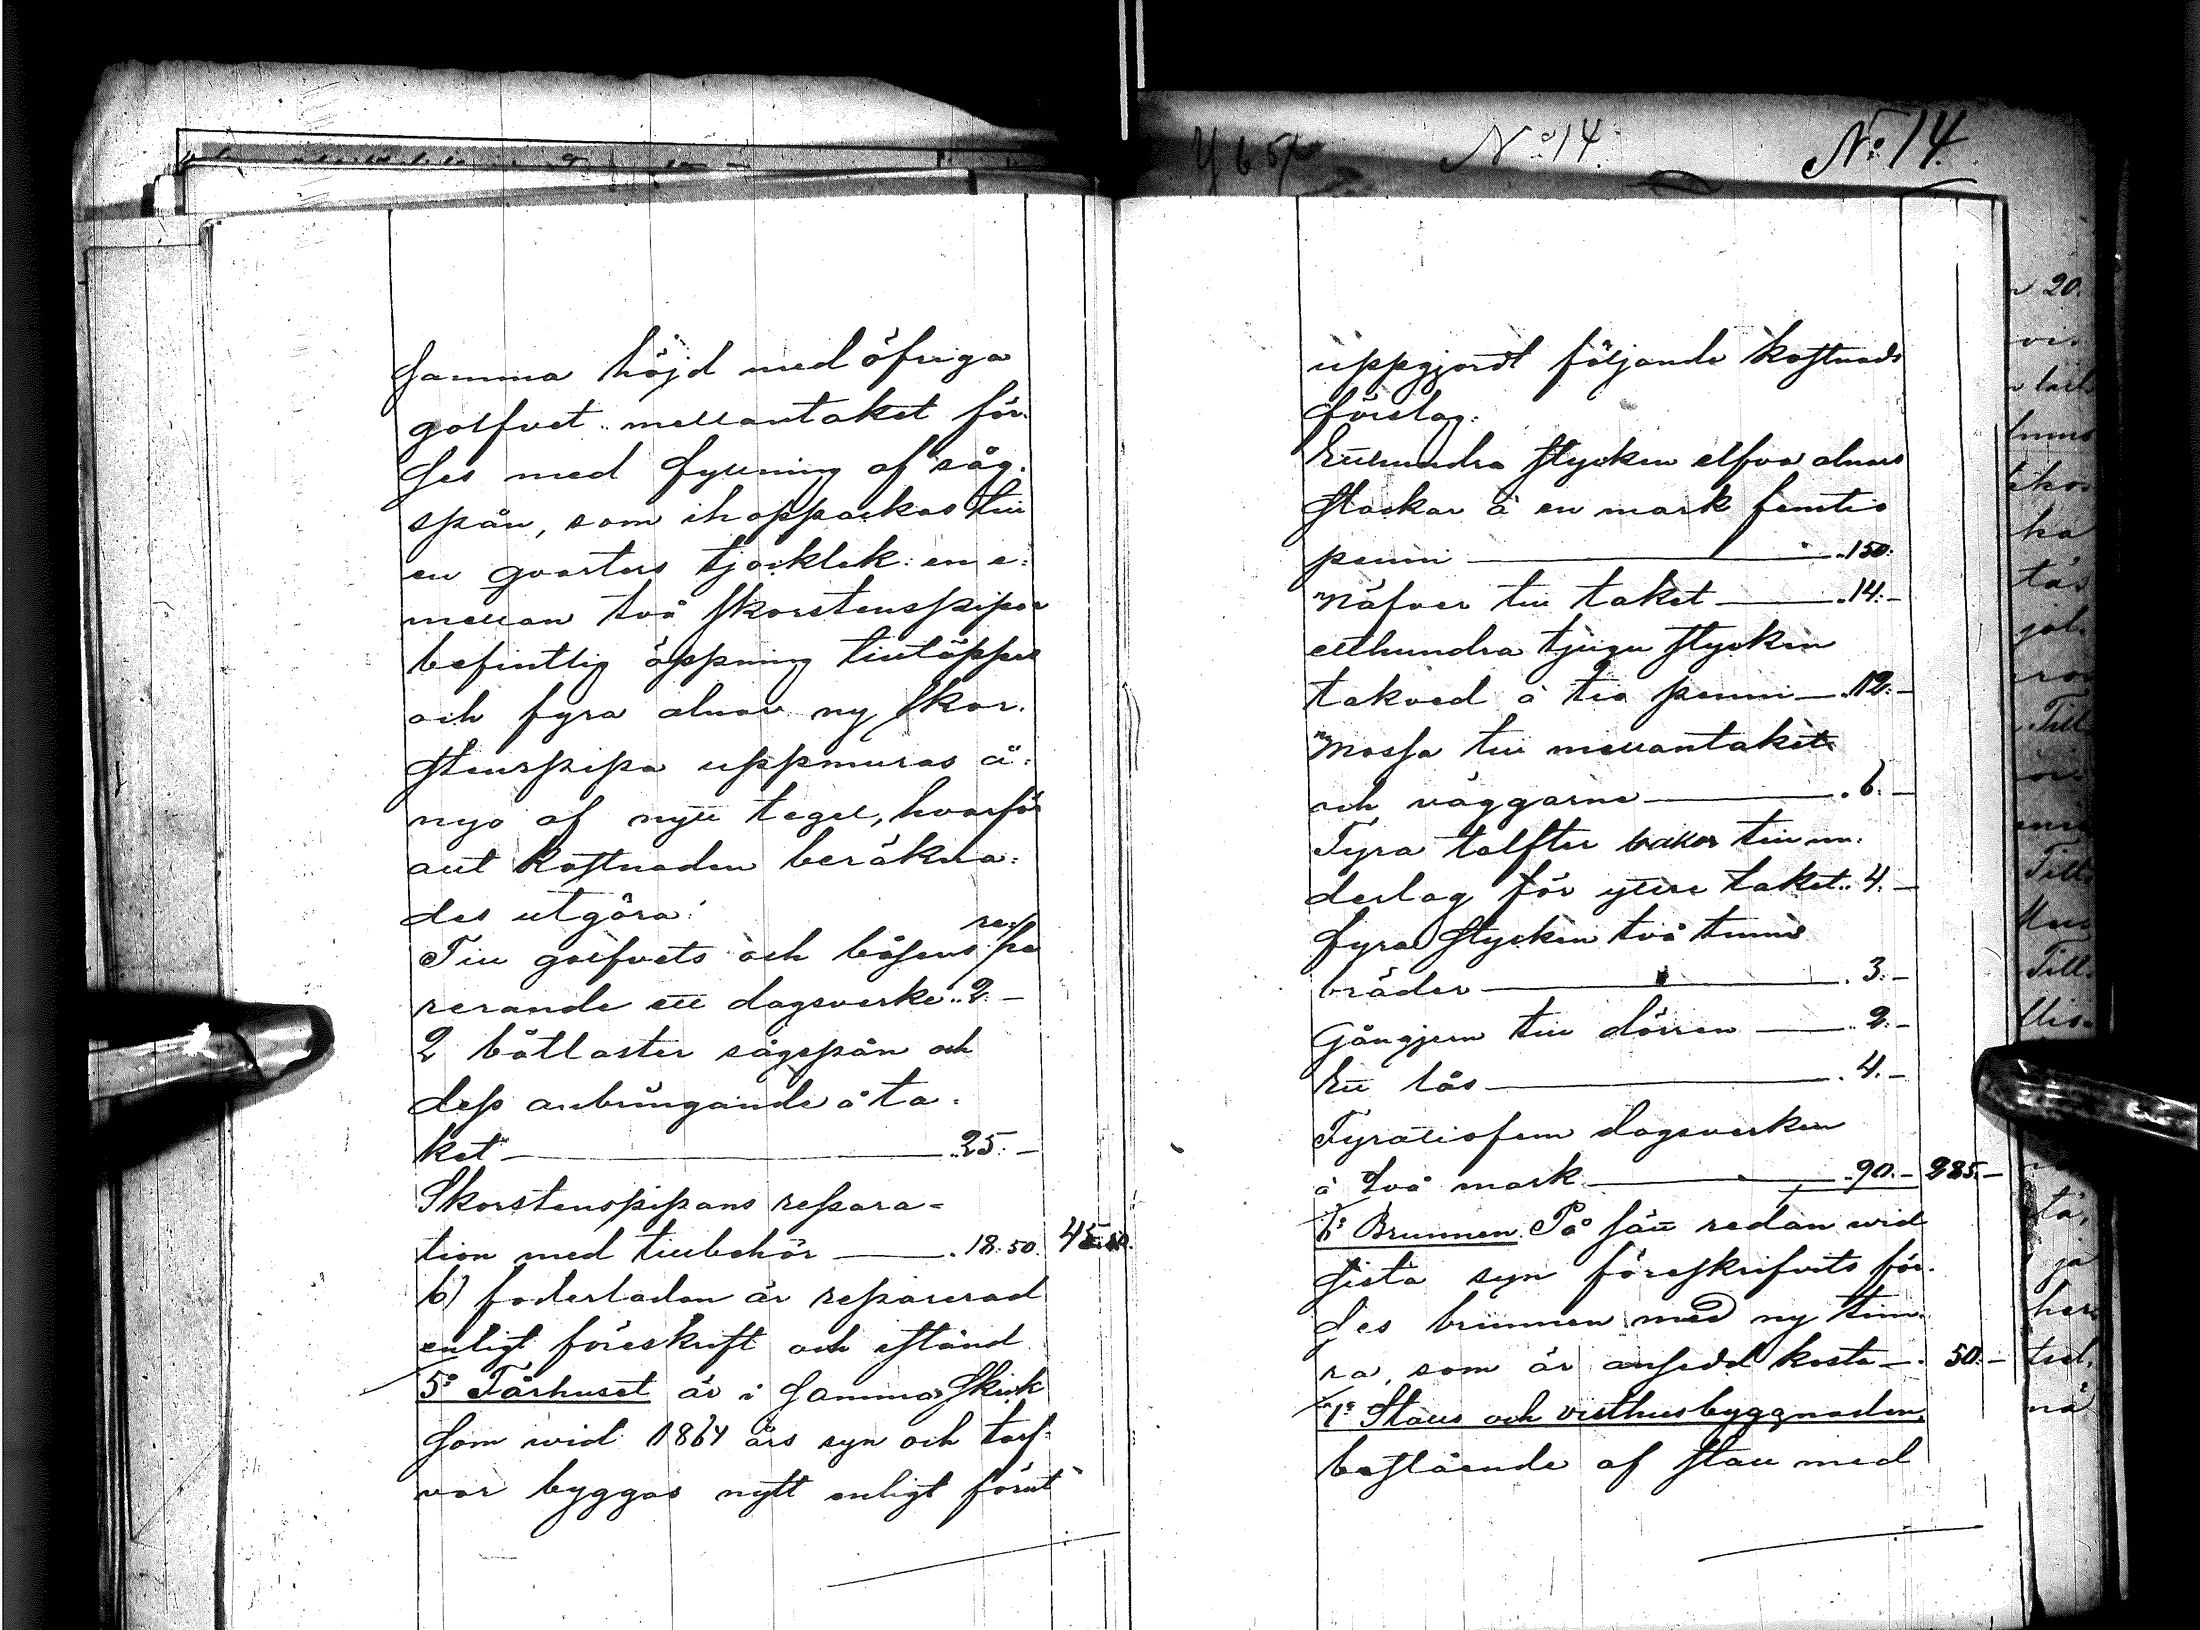 samma höjd med öfriga
golfvet. mellantaket för-
ses med fyllning af såg-
spån, som ihoppackas till
en qvarters tjocklek: en e-
mellan två skorstenspipor
befintlig öppning tilltäppes
och fyra alnar ny skor-
stenspipa uppmuras å-
nyo af nytt tegel, hvarför
allt kostnaden beräkna-
des utgöra:
Till golfvets och båsens repa
rerande ett dagsverke.. 2.-
2 båtlaster sågspån och
dess anbringande å ta-
ket .25.-
Skorstenspipans repara-
tion med tillbehör .18.50. 45.50.
b) foderladan är reparerad
enligt föreskrift och istånd
5o Fårhuset är i samma skick
som wid 1864 års syn och torf-
var byggas nytt enligt förut
No 14. No 14.
uppgjordt följande kostnads
förslag:
Etthundra stycken elfva alnars
stockar à en mark femtio
penni .150.
Näfver till taket .14.-
etthundra tjugu stycken
takved à tio penni .12.-
Mossa till mellantaket
och väggarne .6.-
Fyra tolfter bakar till un-
derlag för yttre taket.. 4.-
fyra stycken två tums
bräder .3.-
Gångjern till dörren .2.-
Ett lås .4.-
Fyratiofem dagsverken
à två mark .90.- 285.-
6o Brunnen. På sätt redan wid
sista syn föreskrifvits för-
ses brunnen med ny tim-
ra, som är ansedd kosta . 50.-
7o Stall och visthusbyggnaden,
bestående af stall med